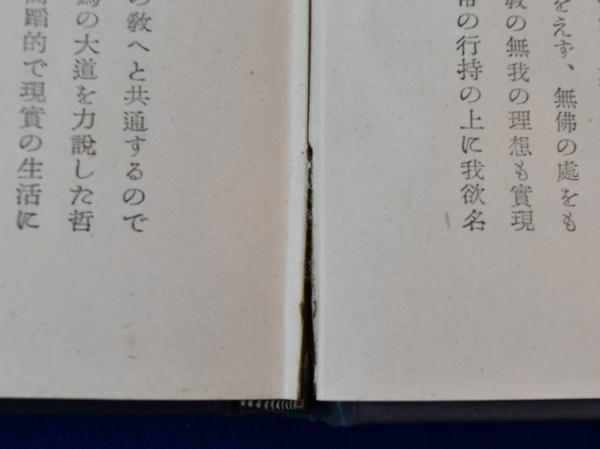 をえず、無佛の處をも
教の無我の理想も實現
の行持の上に我欲名
の教へと共通するので
爲の大道を力說した哲
高蹈的で現實の生活に